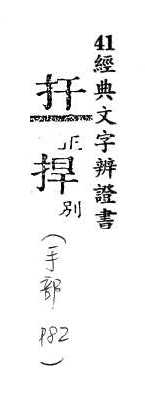 41經典文字辨證書
扞正
捍别
(手部 P82)